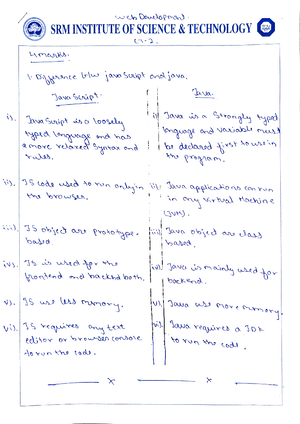 Web Development
SRM INSTITUTE OF SCIENCE & TECHNOLOGY
CT-2.
4 marks.
1. Difference b/w javaScript and java.
JavaScript. Java.
i). JavaScript is a loosely
typed language and has
a more relaxed Syntax and
rules.
i) Java is a Strongly typed
language and variable must
be declared first to use in
the program.
ii). JS code used to run only in
the browser.
ii). Java applications can run
in any virtual Machine
(JVM).
iii). JS object are prototype
based.
iii) Java object are class
based.
iv). JS is used for the
frontend and backend both.
iv). Java is mainly used for
backend.
v). JS use less memory.
v). Java use more memory.
vi). JS requires any text
editor or browser console
to run the code.
vi). Java requires a JDK
to run the code.